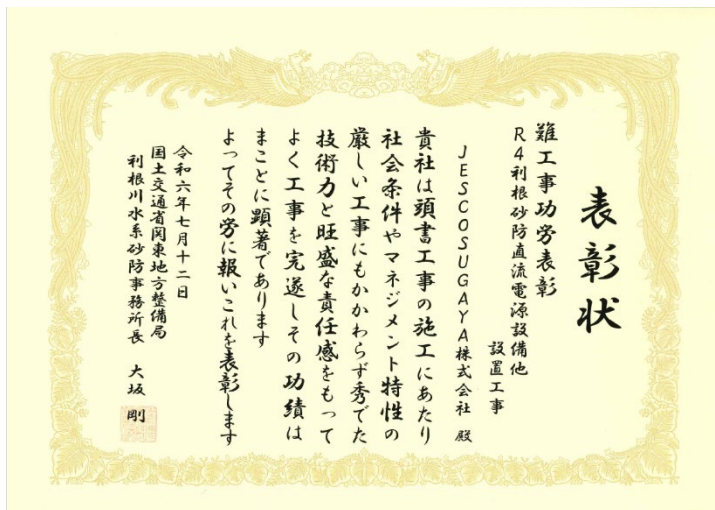 表彰状
難工事功労表彰
R4利根砂防直流電源設備他
設置工事
JESCOSUGAYA株式会社 殿
貴社は頭書工事の施工にあたり
社会条件やマネジメント特性の
厳しい工事にもかかわらず秀でた
技術力と旺盛な責任感をもって
よく工事を完遂しその功績は
まことに顕著であります
よってその労に報いこれを表彰します
令和六年七月十二日
国土交通省関東地方整備局
利根川水系砂防事務所長 大坂 剛